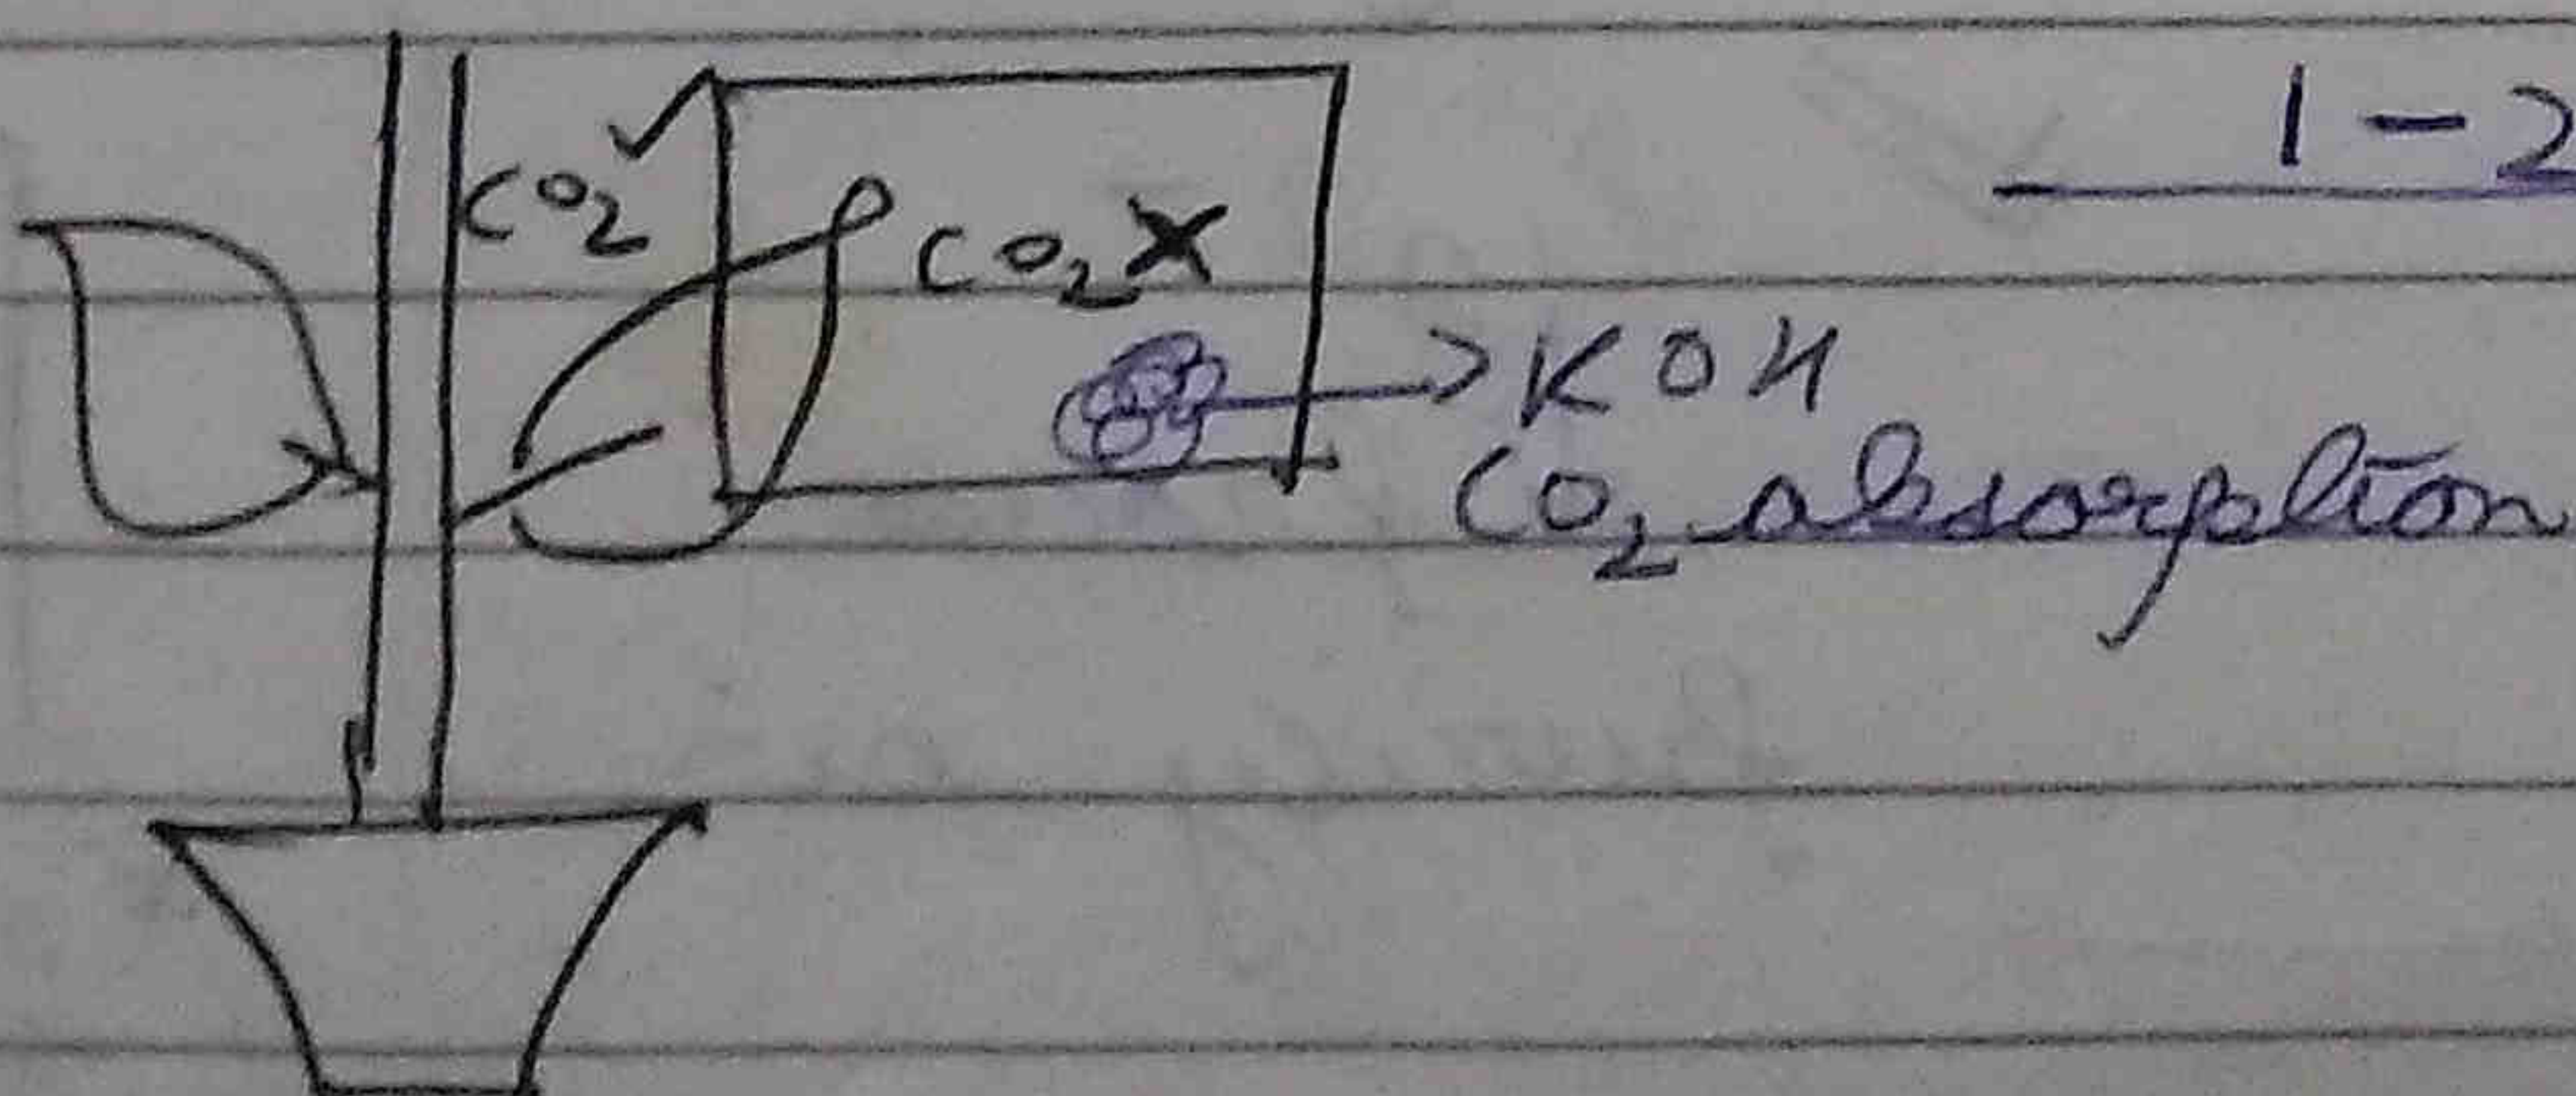 1-2
CO₂ ✓
CO₂ X
KOH
CO₂ absorption